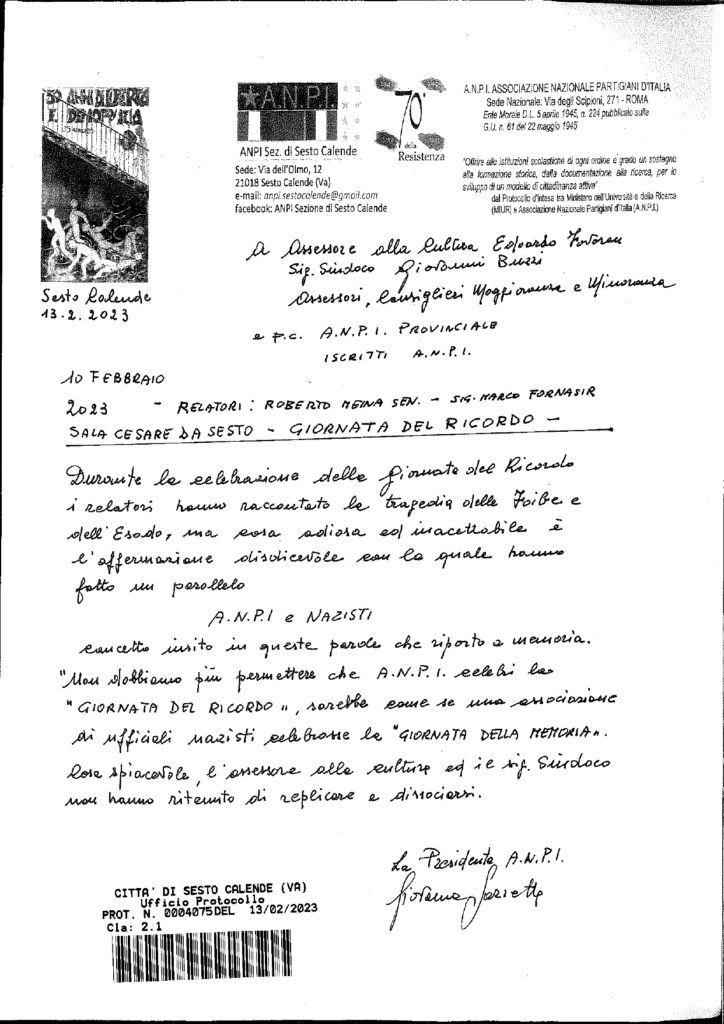 50 ANNI DI LIBERTÀ
E DEMOCRAZIA
A.N.P.I.
ANPI Sez. di Sesto Calende
Sede: Via dell'Olmo, 12
21018 Sesto Calende (Va)
e-mail: anpi.sestocalende@gmail.com
facebook: ANPI Sezione di Sesto Calende
70°
della
Resistenza
A.N.P.I. ASSOCIAZIONE NAZIONALE PARTIGIANI D'ITALIA
Sede Nazionale: Via degli Scipioni, 271 - ROMA
Ente Morale D.L. 5 aprile 1945, n. 224 pubblicato sulla
G.U. n. 61 del 22 maggio 1945
"Offrire alle istituzioni scolastiche di ogni ordine e grado un sostegno
alla formazione storica, dalla documentazione alla ricerca, per lo
sviluppo di un modello di cittadinanza attiva"
dal Protocollo d'intesa tra Ministero dell'Università e della Ricerca
(MIUR) e Associazione Nazionale Partigiani d'Italia (A.N.P.I.)
Sesto Calende
13.2.2023
A Assessore alla Cultura Edoardo
Sig. Sindaco Giovanni Buzzi
Assessori, Consiglieri Maggioranza e Minoranza
e p.c. A.N.P.I. PROVINCIALE
ISCRITTI A.N.P.I.
10 FEBBRAIO
2023 - RELATORI: ROBERTO MEINA SEN. - SIG. MARCO FORNASIR
SALA CESARE DA SESTO - GIORNATA DEL RICORDO -
Durante la celebrazione della Giornata del Ricordo
i relatori hanno raccontato la tragedia delle Foibe e
dell'Esodo, ma cosa odiosa ed inaccettabile è
l'affermazione disdicevole con la quale hanno
fatto un parallelo
A.N.P.I e NAZISTI
concetto insito in queste parole che riporto a memoria.
"Non dobbiamo più permettere che A.N.P.I. celebri la
"GIORNATA DEL RICORDO", sarebbe come se una associazione
di ufficiali nazisti celebrasse la "GIORNATA DELLA MEMORIA".
Cosa spiacevole, l'assessore alla cultura ed il sig. Sindaco
non hanno ritenuto di replicare e dissociarsi.
La Presidente A.N.P.I.
Giovanna
CITTA' DI SESTO CALENDE (VA)
Ufficio Protocollo
PROT. N. 0004075DEL 13/02/2023
Cla: 2.1